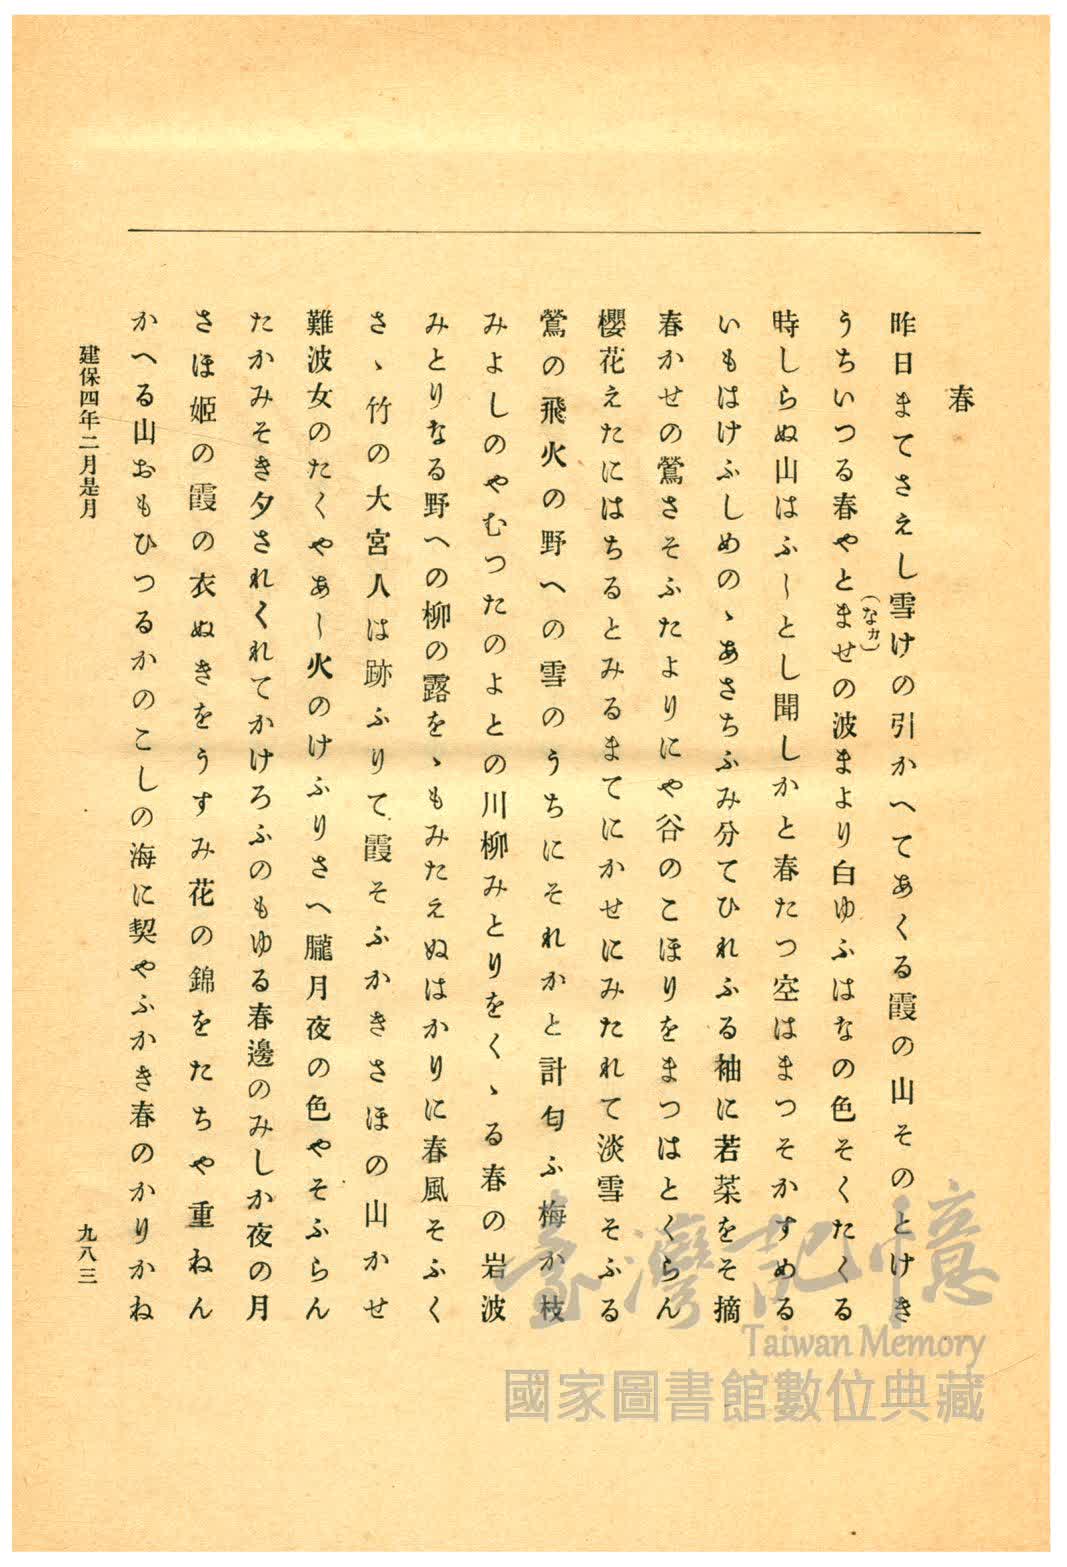 春
昨日まてさえし雪けの引かへてあくる霞の山そのとけき
うちいつる春やとませの波まより白ゆふはなの色そくたくる
(なカ)
時しらぬ山はふ〳〵とし聞しかと春たつ空はまつそかすめる
いもはけふしめのゝあさちふみ分てひれふる袖に若菜をそ摘
春かせの鶯さそふたよりにや谷のこほりをまつはとくらん
櫻花えたにはちるとみるまてにかせにみたれて淡雪そふる
鶯の飛火の野への雪のうちにそれかと計匂ふ梅か枝
みよしのやむつたのよとの川柳みとりをくゝる春の岩波
みとりなる野への柳の露をゝもみたえぬはかりに春風そふく
さゝ竹の大宮人は跡ふりて霞そふかきさほの山かせ
難波女のたくやあし火のけふりさへ朧月夜の色やそふらん
たかみそき夕されくれてかけろふのもゆる春邊のみしか夜の月
さほ姫の霞の衣ぬきをうすみ花の錦をたちや重ねん
かへる山おもひつるかのこしの海に契やふかき春のかりかね
建保四年二月是月
九八三
臺灣記憶
Taiwan Memory
國家圖書館數位典藏